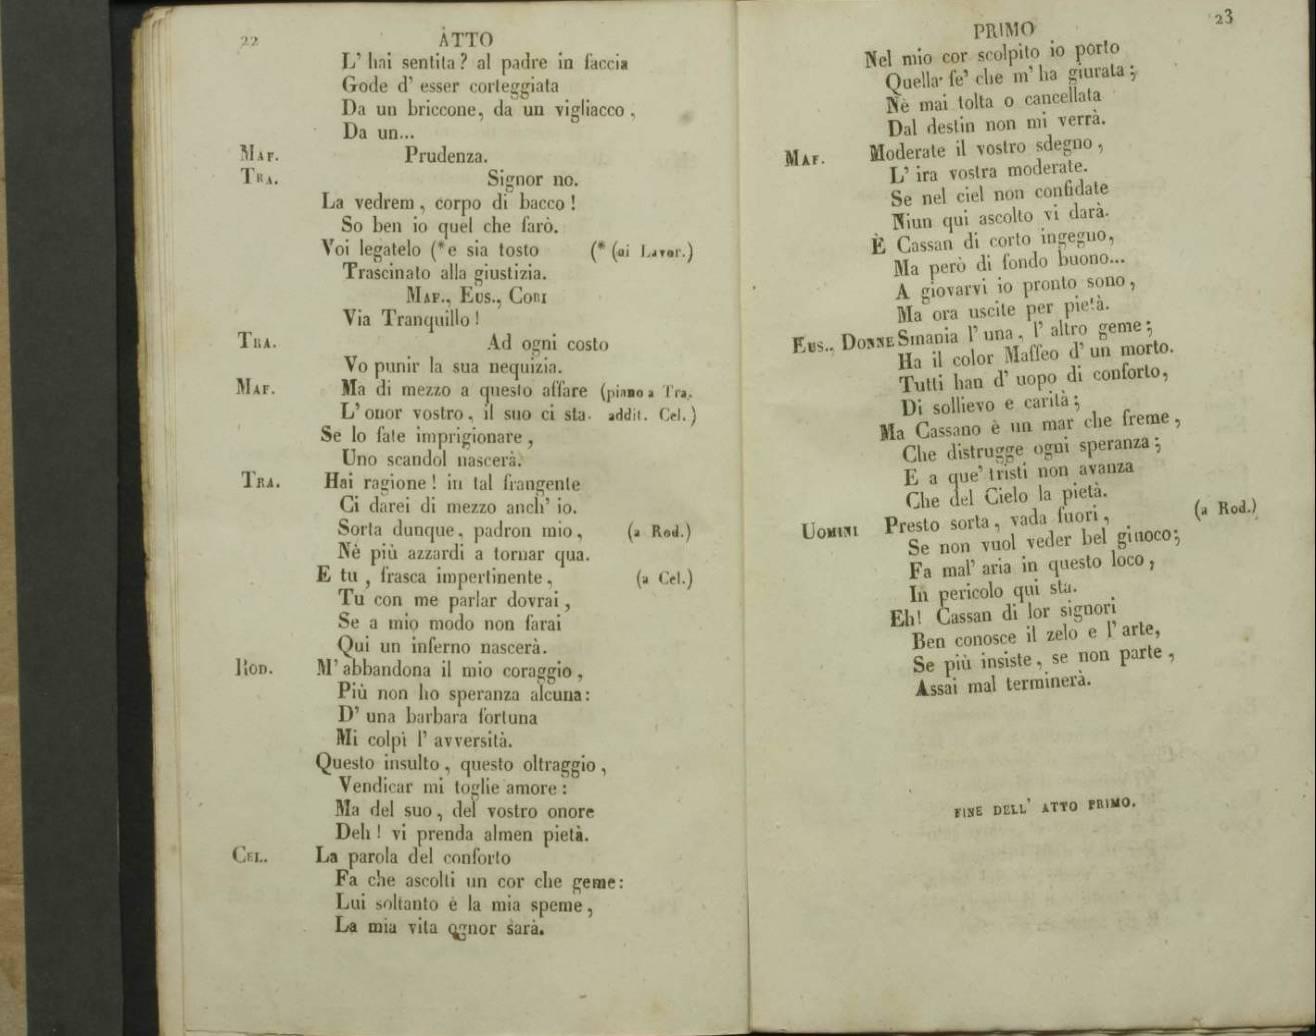 22 ATTO
L' hai sentita? al padre in faccia
Gode d' esser corteggiata
Da un briccone, da un vigliacco,
Da un...
Maf. Prudenza.
Tra. Signor no.
La vedrem, corpo di bacco!
So ben io quel che farò.
Voi legatelo (*e sia tosto (* (ai Lavor.)
Trascinato alla giustizia.
Maf., Eus., Cori
Via Tranquillo!
Tra. Ad ogni costo
Vo punir la sua nequizia.
Maf. Ma di mezzo a questo affare (piano a Tra.
L' onor vostro, il suo ci sta. addit. Cel.)
Se lo fate imprigionare,
Uno scandol nascerà.
Tra. Hai ragione! in tal frangente
Ci darei di mezzo anch' io.
Sorta dunque, padron mio, (a Rod.)
Nè più azzardi a tornar qua.
E tu, frasca impertinente, (a Cel.)
Tu con me parlar dovrai,
Se a mio modo non farai
Qui un inferno nascerà.
Rod. M' abbandona il mio coraggio,
Più non ho speranza alcuna:
D' una barbara fortuna
Mi colpì l' avversità.
Questo insulto, questo oltraggio,
Vendicar mi toglie amore:
Ma del suo, del vostro onore
Deh! vi prenda almen pietà.
Cel. La parola del conforto
Fa che ascolti un cor che geme:
Lui soltanto è la mia speme,
La mia vita ognor sarà.
PRIMO 23
Nel mio cor scolpito io porto
Quella fe' che m' ha giurata;
Nè mai tolta o cancellata
Dal destin non mi verrà.
Maf. Moderate il vostro sdegno,
L' ira vostra moderate.
Se nel ciel non confidate
Niun qui ascolto vi darà.
È Cassan di corto ingegno,
Ma però di fondo buono...
A giovarvi io pronto sono,
Ma ora uscite per pietà.
Eus., Donne Smania l' una, l' altro geme;
Ha il color Maffeo d' un morto.
Tutti han d' uopo di conforto,
Di sollievo e carità;
Ma Cassano è un mar che freme,
Che distrugge ogni speranza;
E a que' tristi non avanza
Che del Cielo la pietà.
Uomini Presto sorta, vada fuori, (a Rod.)
Se non vuol veder bel giuoco;
Fa mal' aria in questo loco,
In pericolo qui sta.
Eh! Cassan di lor signori
Ben conosce il zelo e l' arte,
Se più insiste, se non parte,
Assai mal terminerà.
FINE DELL' ATTO PRIMO.